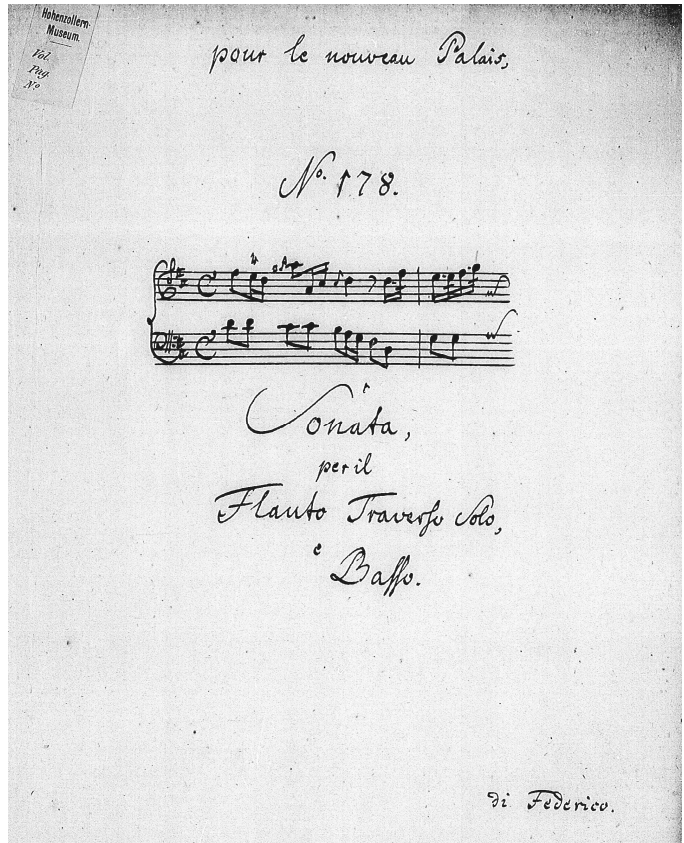 Hohenzollern-
Museum.
Vol.
Pag.
No
pour le nouveau Palais,
No. 178.
Sonata,
per il
Flauto Traverſo Solo,
e
Baſſo.
di Federico.